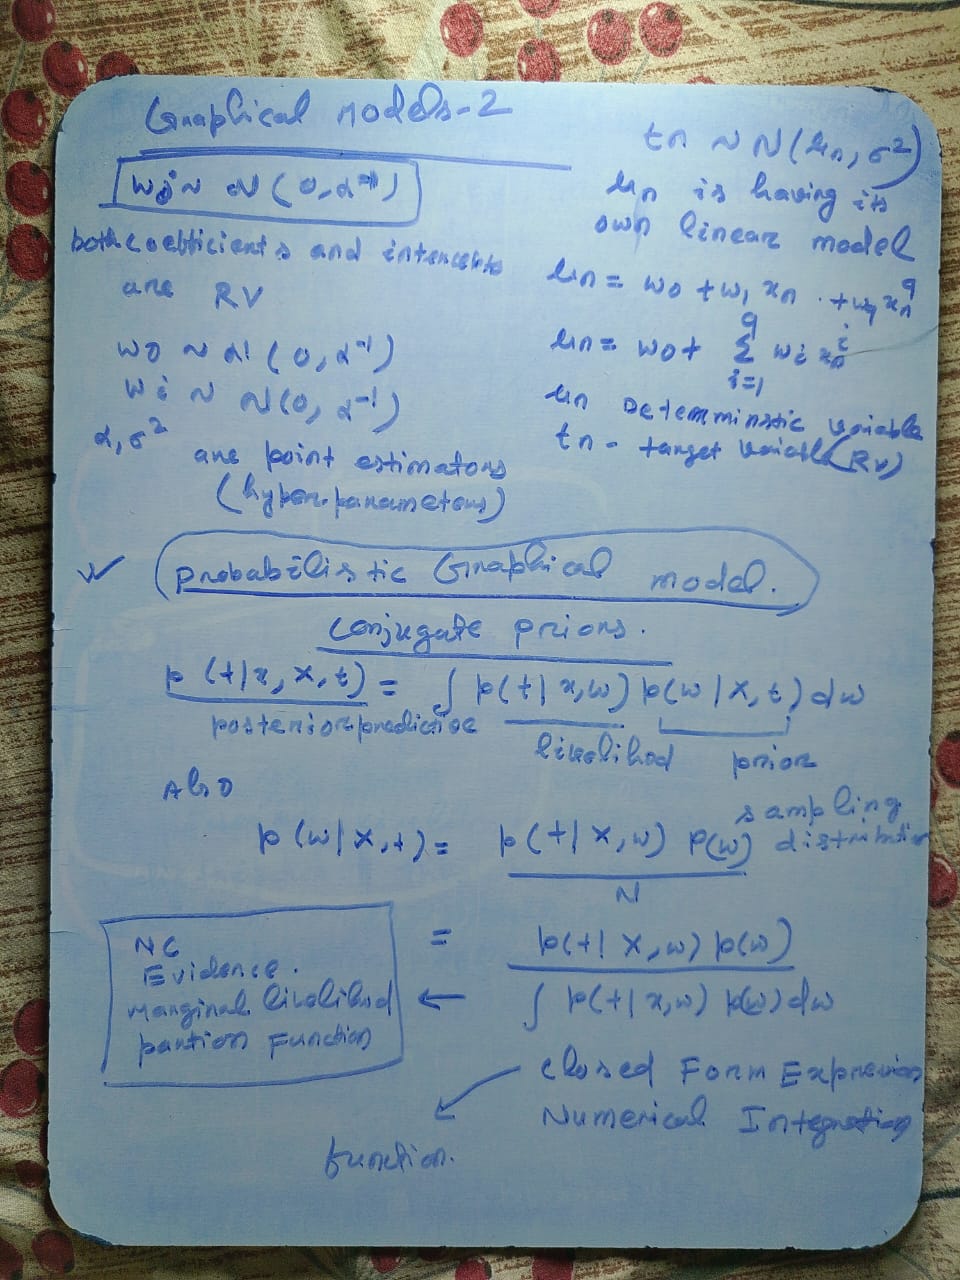 Graphical models-2
wi ~ N(0, α⁻¹)
both coefficients and intercepts
are RV
w0 ~ N(0, α⁻¹)
wi ~ N(0, α⁻¹)
α, σ²
are point estimators
(hyper-parameters)
tn ~ N(μn, σ²)
μn is having its
own linear model
μn = w0 + w1 xn .. + wq xn^q
μn = w0 + Σ_{i=1}^{q} wi xn^i
μn Deterministic variable
tn - target variable (RV)
✓ Probabilistic Graphical model.
conjugate priors.
p(t|x, X, t) = ∫ p(t|x,w) p(w|X,t) dw
posterior predictive
likelihod prior
Also
sampling
distribution
p(w|X,t) = p(t|X,w) p(w) / N
= p(t|X,w) p(w) / ∫ p(t|x,w) p(w) dw
NC
Evidence.
marginal likelihod ←
partion Function
closed Form Expression
Numerical Integration
function.